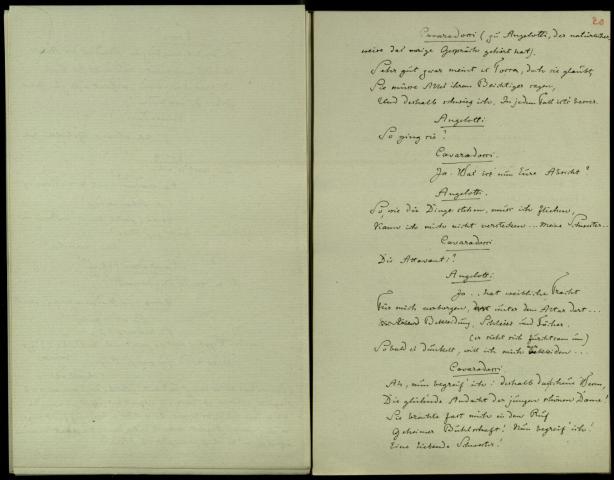 20
Cavaradossi (zu Angelotti, der natürlicher
weise das vorige Gespräch gehört hat).
Sehr gut zwar meint es Tosca, doch sie glaubt,
Sie müsse Alles ihrem Beichtiger sagen,
Und deshalb schwieg ich. In jedem Fall ists besser.
Angelotti
So ging sie?
Cavaradossi.
Ja. Was ist nun Eure Absicht?
Angelotti.
So, wie die Dinge stehen, muss ich fliehen,
Kann ich mich nicht verstecken... Meine Schwester..
Cavaradossi
Die Attavanti?
Angelotti
Ja.. hat weibliche Tracht
Für mich verborgen, unter dem Altar dort...
Bekleidung, Schleier und Fächer.
(er sieht sich furchtsam um)
Sobald es dunkelt, will ich mich bekleiden...
Cavaradossi
Ah, nun begreif' ich: deshalb
Die glühende Andacht der jungen schönen Dame!
Sie brachte fast mich in den Ruf
Geheimer Buhlschaft! Nun begreif' ich!
Eine liebende Schwester!